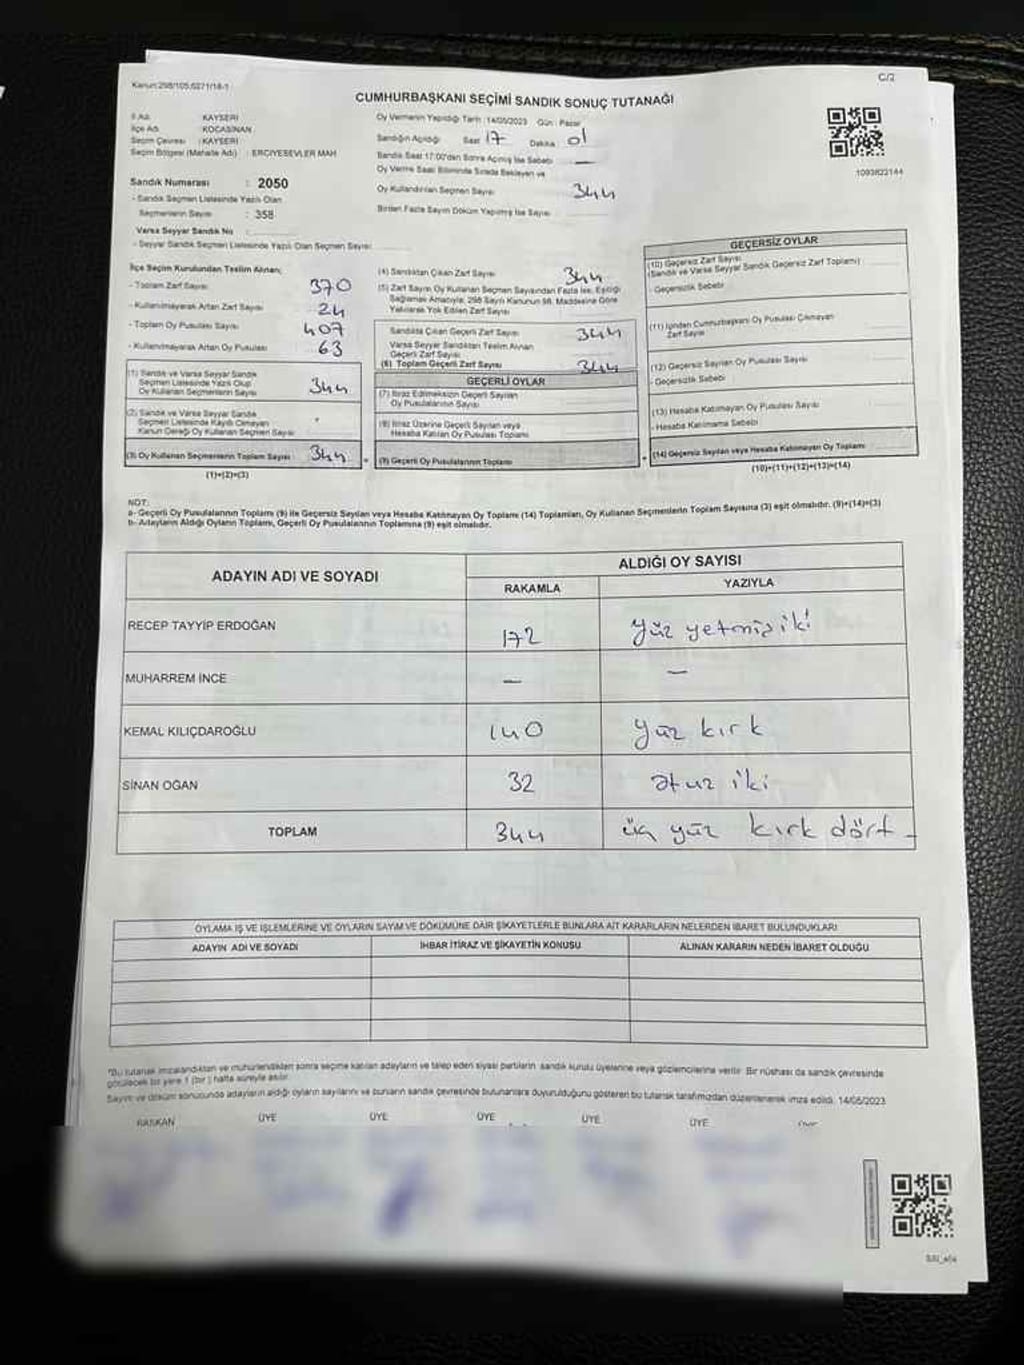 Kanun:298/105,6271/18-1
C/2
CUMHURBAŞKANI SEÇİMİ SANDIK SONUÇ TUTANAĞI
İl Adı : KAYSERİ
İlçe Adı : KOCASİNAN
Seçim Çevresi : KAYSERİ
Seçim Bölgesi (Mahalle Adı) : ERCİYESEVLER MAH
Sandık Numarası : 2050
- Sandık Seçmen Listesinde Yazılı Olan
Seçmenlerin Sayısı : 358
Varsa Seyyar Sandık No :
- Seyyar Sandık Seçmen Listesinde Yazılı Olan Seçmen Sayısı:
Oy Vermenin Yapıldığı Tarih :14/05/2023 Gün : Pazar
Sandığın Açıldığı Saat 17 Dakika 01
Sandık Saat 17:00'den Sonra Açılmış İse Sebebi —
Oy Verme Saati Bitiminde Sırada Bekleyen ve
Oy Kullandırılan Seçmen Sayısı 344
Birden Fazla Sayım Döküm Yapılmış İse Sayısı
1093822144
İlçe Seçim Kurulundan Teslim Alınan;
- Toplam Zarf Sayısı 370
- Kullanılmayarak Artan Zarf Sayısı 24
- Toplam Oy Pusulası Sayısı 407
- Kullanılmayarak Artan Oy Pusulası 63
(1) Sandık ve Varsa Seyyar Sandık
Seçmen Listesinde Yazılı Olup
Oy Kullanan Seçmenlerin Sayısı 344
(2) Sandık ve Varsa Seyyar Sandık
Seçmen Listesinde Kaydı Olmayan
Kanun Gereği Oy Kullanan Seçmen Sayısı
(3) Oy Kullanan Seçmenlerin Toplam Sayısı 344
(1)+(2)=(3)
(4) Sandıktan Çıkan Zarf Sayısı 344
(5) Zarf Sayısı Oy Kullanan Seçmen Sayısından Fazla İse, Eşitliği
Sağlamak Amacıyla, 298 Sayılı Kanunun 98. Maddesine Göre
Yakılarak Yok Edilen Zarf Sayısı
Sandıkta Çıkan Geçerli Zarf Sayısı 344
Varsa Seyyar Sandıktan Teslim Alınan
Geçerli Zarf Sayısı
(6) Toplam Geçerli Zarf Sayısı 344
GEÇERLİ OYLAR
(7) İtiraz Edilmeksizin Geçerli Sayılan
Oy Pusulalarının Sayısı
(8) İtiraz Üzerine Geçerli Sayılan veya
Hesaba Katılan Oy Pusulası Toplamı
(9) Geçerli Oy Pusulalarının Toplamı
GEÇERSİZ OYLAR
(10) Geçersiz Zarf Sayısı
(Sandık ve Varsa Seyyar Sandık Geçersiz Zarf Toplamı)
- Geçersizlik Sebebi
(11) İçinden Cumhurbaşkanı Oy Pusulası Çıkmayan
Zarf Sayısı
(12) Geçersiz Sayılan Oy Pusulası Sayısı
- Geçersizlik Sebebi
(13) Hesaba Katılmayan Oy Pusulası Sayısı
- Hesaba Katılmama Sebebi
(14) Geçersiz Sayılan veya Hesaba Katılmayan Oy Toplamı
(10)+(11)+(12)+(13)=(14)
NOT:
a- Geçerli Oy Pusulalarının Toplamı (9) ile Geçersiz Sayılan veya Hesaba Katılmayan Oy Toplamı (14) Toplamları, Oy Kullanan Seçmenlerin Toplam Sayısına (3) eşit olmalıdır. (9)+(14)=(3)
b- Adayların Aldığı Oyların Toplamı, Geçerli Oy Pusulalarının Toplamına (9) eşit olmalıdır.
ADAYIN ADI VE SOYADI
ALDIĞI OY SAYISI
RAKAMLA YAZIYLA
RECEP TAYYİP ERDOĞAN 172 yüz yetmiş iki
MUHARREM İNCE — —
KEMAL KILIÇDAROĞLU 140 yüz kırk
SİNAN OĞAN 32 otuz iki
TOPLAM 344 üç yüz kırk dört
OYLAMA İŞ VE İŞLEMLERİNE VE OYLARIN SAYIM VE DÖKÜMÜNE DAİR ŞİKAYETLERLE BUNLARA AİT KARARLARIN NELERDEN İBARET BULUNDUKLARI
ADAYIN ADI VE SOYADI İHBAR İTİRAZ VE ŞİKAYETİN KONUSU ALINAN KARARIN NEDEN İBARET OLDUĞU
*Bu tutanak imzalandıktan ve mühürlendikten sonra seçime katılan adayların ve talep eden siyasi partilerin sandık kurulu üyelerine veya gözlemcilerine verilir. Bir nüshası da sandık çevresinde
görülecek bir yere 1 (bir) hafta süreyle asılır.
Sayım ve döküm sonucunda adayların aldığı oyların sayılarını ve bunların sandık çevresinde bulunanlara duyurulduğunu gösteren bu tutanak tarafımızdan düzenlenerek imza edildi. 14/05/2023
BAŞKAN ÜYE ÜYE ÜYE ÜYE ÜYE ÜYE